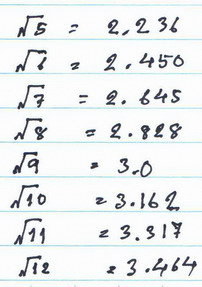 √5 = 2.236
√6 = 2.450
√7 = 2.645
√8 = 2.828
√9 = 3.0
√10 = 3.162
√11 = 3.317
√12 = 3.464